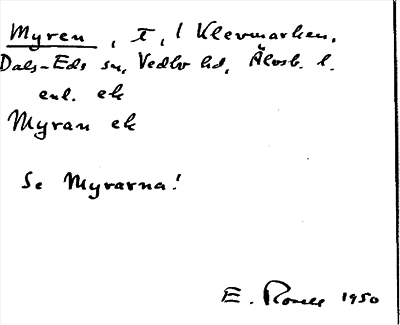 Myren, T, l Klevmarken,
Dals-Eds sn, Vedbo hd, Älvsb. l.
enl. ek
Myran ek
Se Myrarna!
E. Rosell 1950